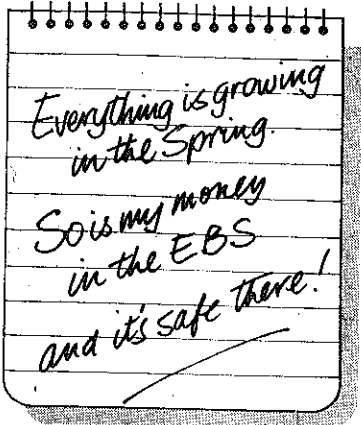 Everything is growing
in the Spring.
So is my money
in the EBS
and it's safe there!